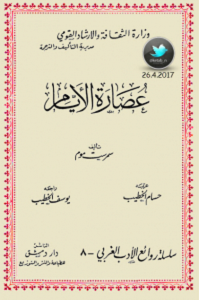 وزارة الثقافة والارشاد القومي
مديرية التأليف والترجمة
26.4.2017
عصارة الأيام
تأليف
سومرست موم
عربه
حسام الخطيب
راجعه
يوسف الخطيب
سلسلة روائع الأدب الغربي - ٨
الناشر
دار دمشق
للطباعة والنشر والتوزيع